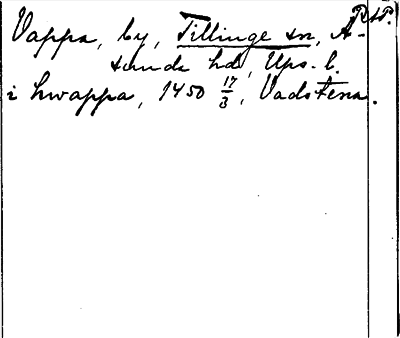 Vappa, by, Tillinge sn, A-
sunda hd, Ups. l.
i hwappa, 1450 17/3, Vadstena.